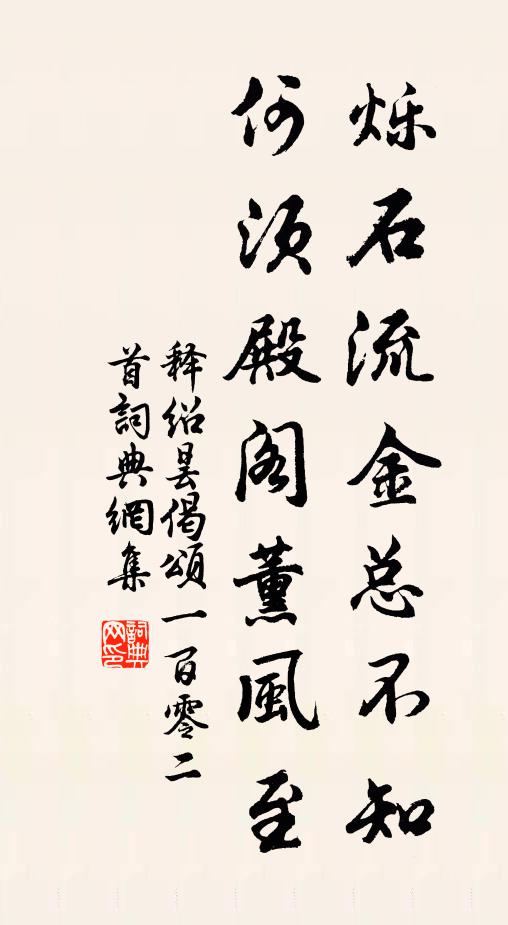 烁石流金总不知
何须殿阁薰風至
释绍昙偈颂一百零二
首詞典網集
詞典
网印